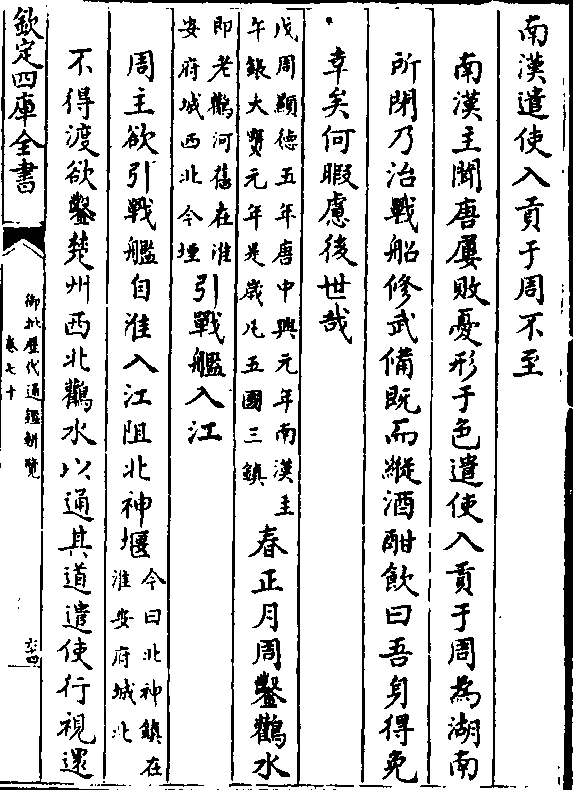 南漢遣使入貢于周不至
南漢主聞唐屢敗憂形于色遣使入貢于周為湖南
所閉乃治戰船修武備既而縱酒酣飲曰吾身得免
幸矣何暇慮後世哉
戊周顯德五年唐中興元年南漢主
午鋹大寶元年是歲凡五國三鎮
春正月周鑿鸛水
即老鸛河舊在淮
安府城西北今堙
引戰艦入江
周主欲引戰艦自淮入江阻北神堰
今曰北神鎮在
淮安府城北
不得渡欲鑿楚州西北鸛水以通其道遣使行視還
欽定四庫全書
御批歷代通鑑輯覽
卷七十
六十四